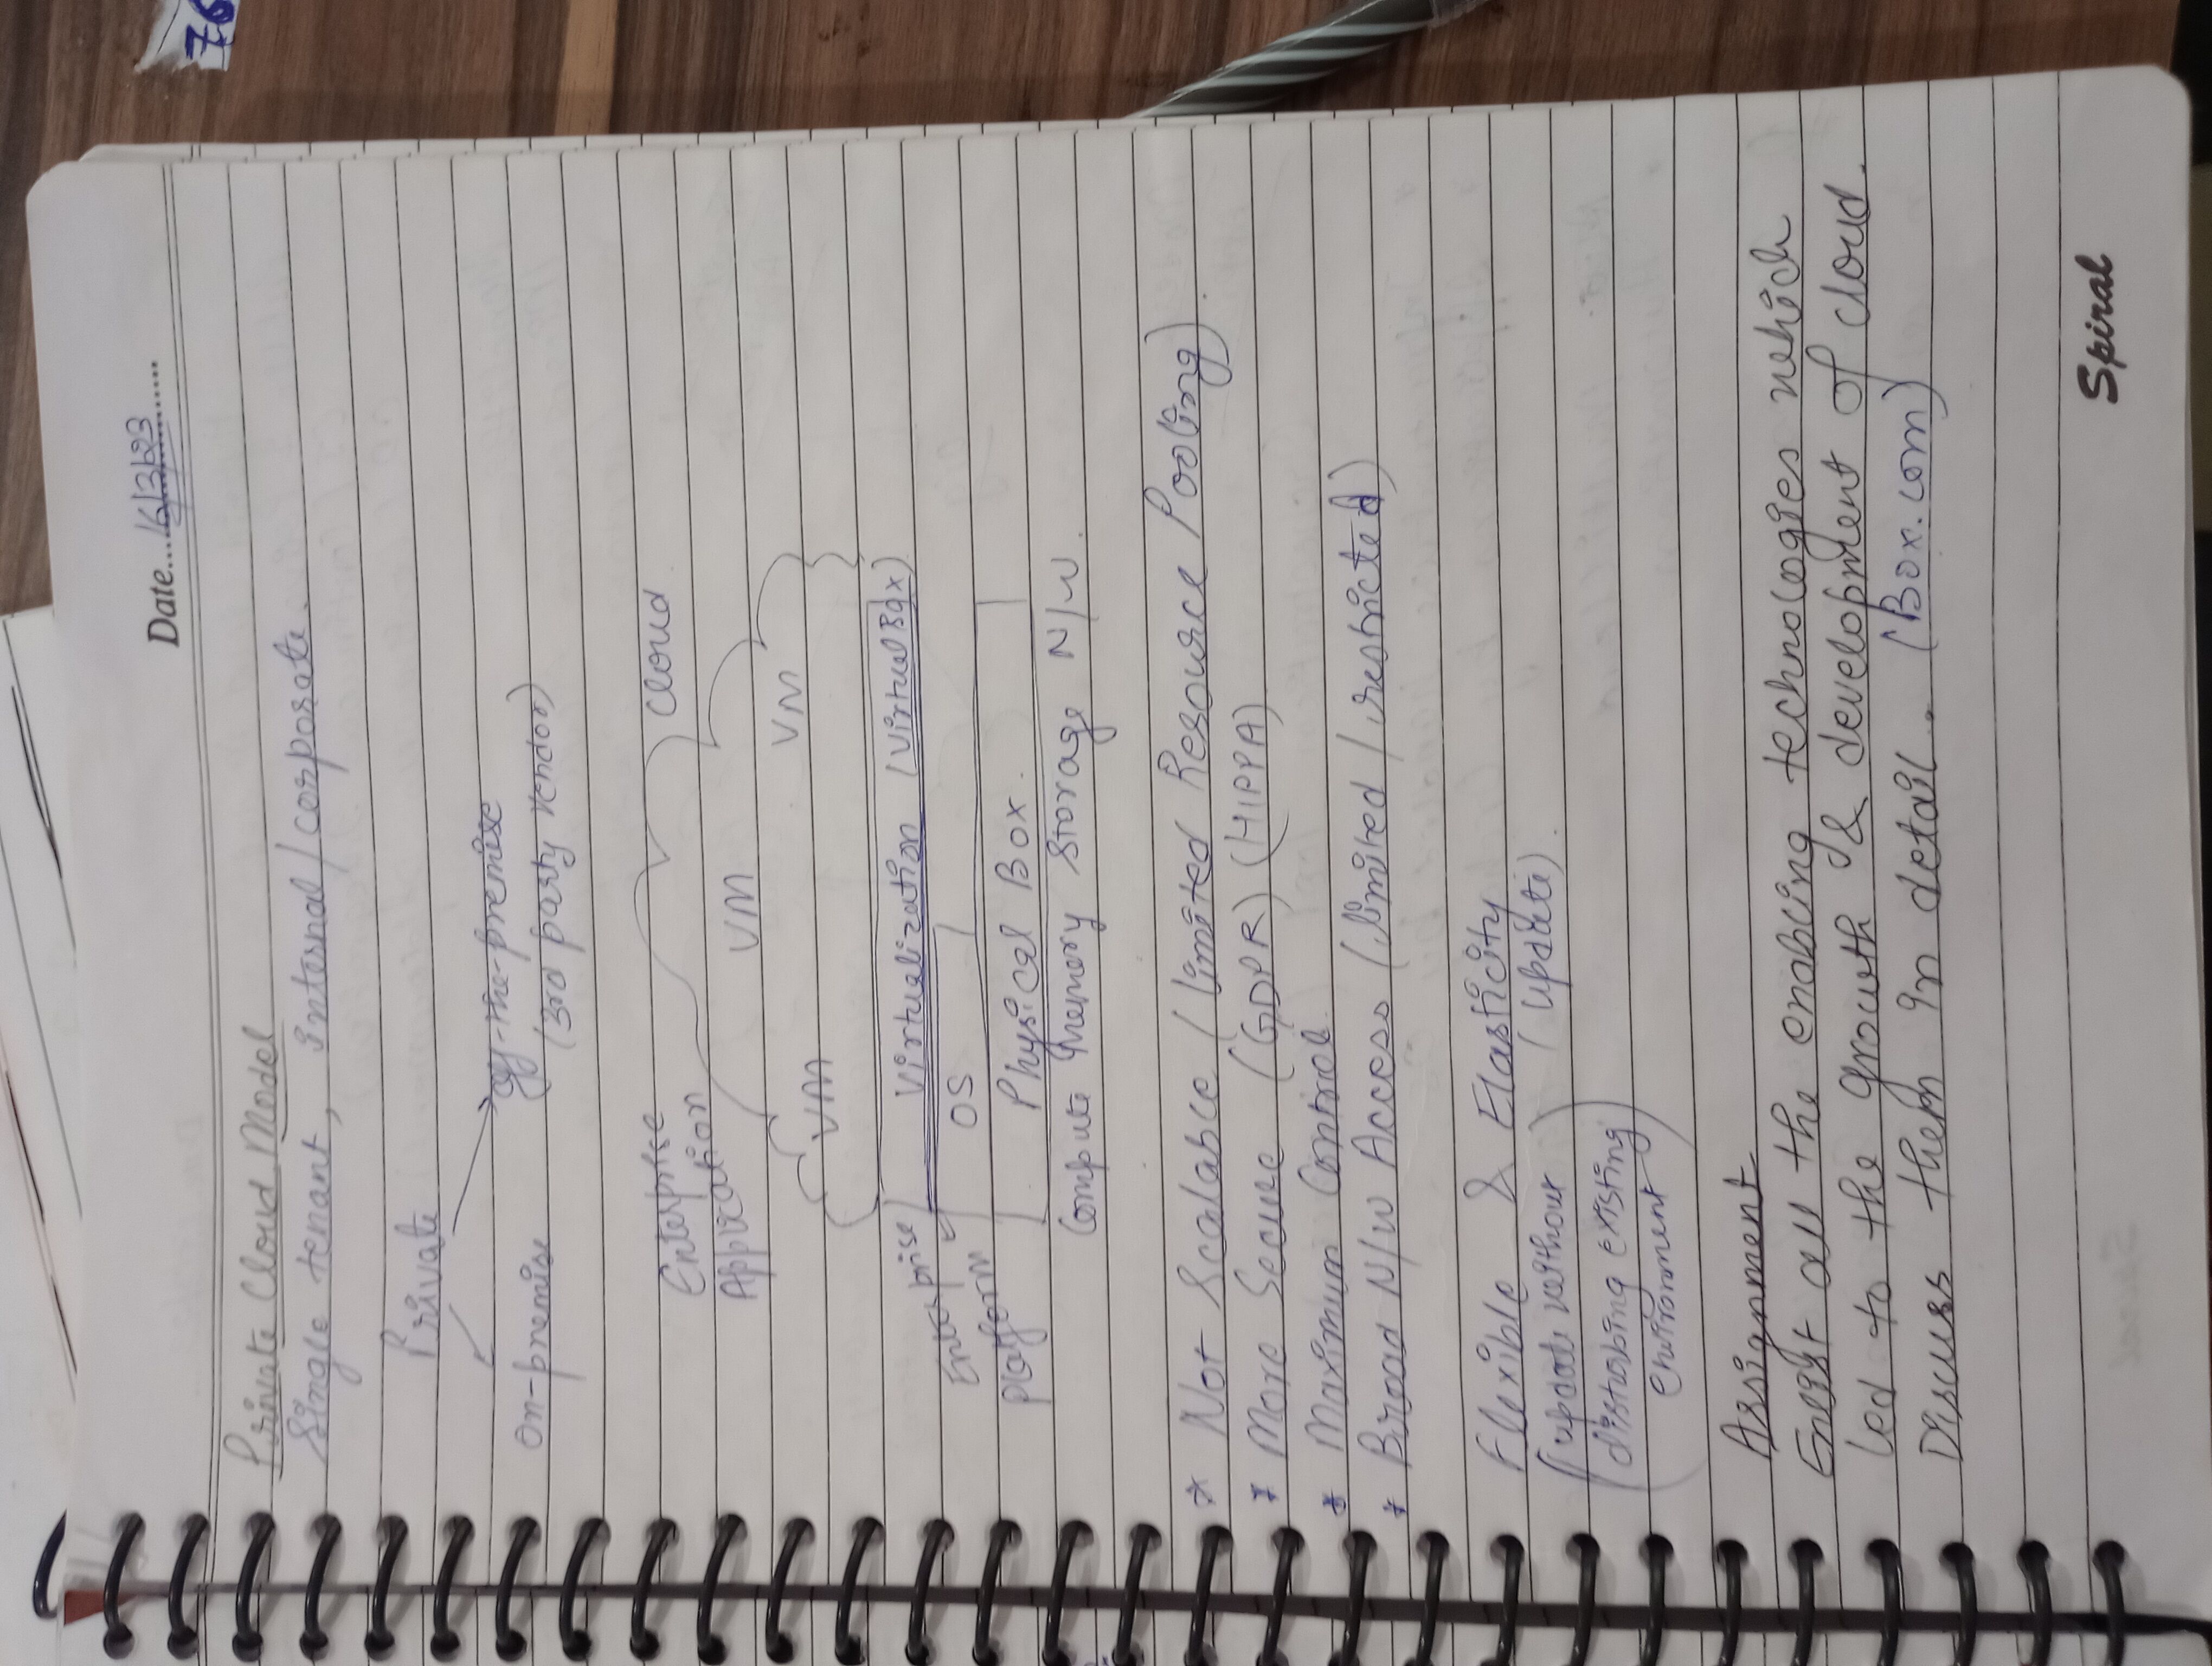 76
Date...16/3/23......
Private Cloud Model
Single tenant, internal / corporate.
Private
on-premise
off-the-premise
(3rd party vendor)
Enterprise
Application
Cloud
VM
VM
VM
Enterprise
Platform
Virtualization (VirtualBox)
OS
Physical Box.
Compute Memory Storage N/W.
* Not Scalable (Limited Resource Pooling).
* More Secure (GDPR) (HIPPA)
* Maximum Control.
* Broad N/W Access (limited / restricted)
Flexible & Elasticity
(update without
disturbing existing
environment)
(update).
Assignment
Enlist all the enabling technologies which
led to the growth & development of cloud.
Discuss them in detail.. (Box.com)
Spiral